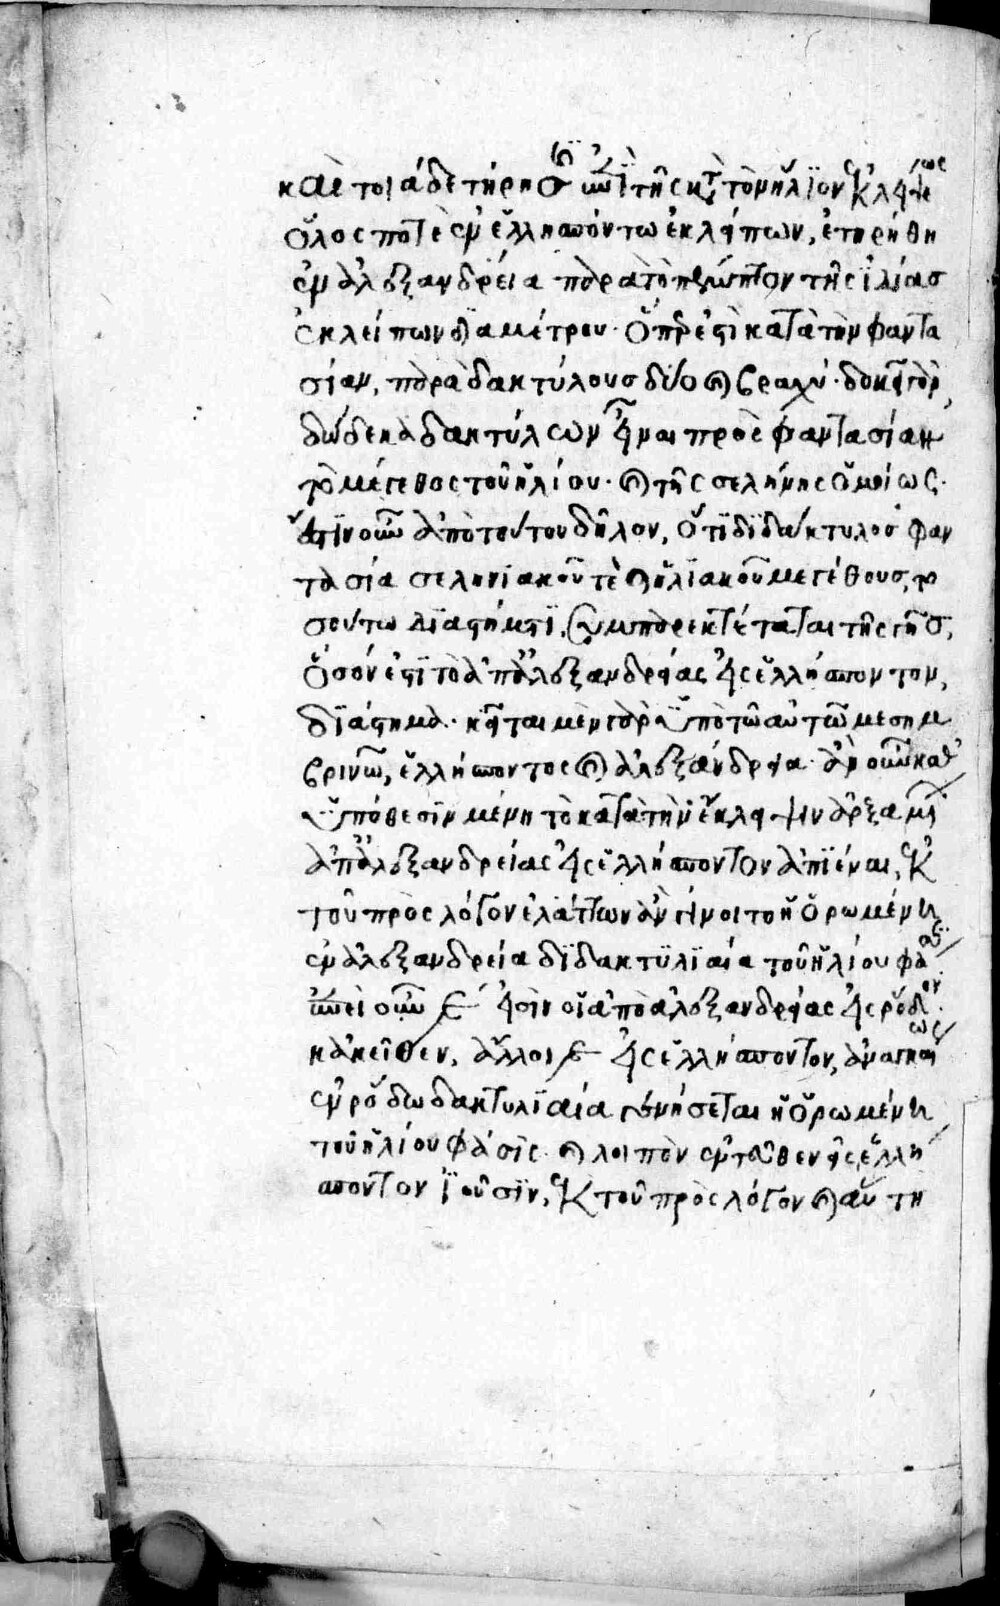 καὶ τοιάδε τήρησις ἐπὶ τῆς κατὰ τὸν ἥλιον ἐκλείψεως
ὅλος ποτὲ ἐν ἑλλησπόντω ἐκλείπων, ἐτηρήθη
ἐν ἀλεξανδρεία παρὰ τὸ πέμπτον τῆς ἰδίας
ἐκλείπων διαμέτρου· ὅπερ ἐστὶ κατὰ τὴν φαντα
σίαν, παρὰ δακτύλους δύο καὶ βραχύ· δοκεῖ γὰρ
δώδεκα δακτύλων εἶναι πρὸς φαντασίαν
τὸ μέγεθος τοῦ ἡλίου· καὶ τῆς σελήνης ὁμοίως·
ἔστιν οὖν ἀπὸ τούτου δῆλον, ὅτι διδάκτυλος φαν
τασία σεληνιακοῦ τε καὶ ἡλιακοῦ μεγέθους, το
σούτω διαστήματι, συμπαρεκτέταται τῆς γῆς,
ὅσον ἐστὶ τὸ ἀπ' ἀλεξανδρείας εἰς ἑλλήσποντον,
διάστημα· κεῖται μὲν γὰρ ὑπὸ τῶ αὐτῶ μεσημ
βρινῶ, ἑλλήσποντος καὶ ἀλεξάνδρεια· ἂν οὖν καθ'
ὑπόθεσιν μένη τὸ κατὰ τὴν ἔκλειψιν ἀρξαμένοις
ἀπ' ἀλεξανδρείας εἰς ἑλλήσποντον ἀπιέναι, ἐκ
τοῦ πρὸς λόγον ἐλάττων ἂν γίνοιτο ἡ ὁρωμένη
ἐν ἀλεξανδρεία διδακτυλιαία τοῦ ἡλίου φάσις·
ἐπεὶ οὖν εἰσιν οἱ ἀπὸ ἀλεξανδρείας εἰς ῥόδον·
κἀκεῖθεν, ἄλλοι εἰς ἑλλήσποντον, ἀναγκαίως
ἐν ῥόδω δακτυλιαία γενήσεται ἡ ὁρωμένη
τοῦ ἡλίου φάσις· καὶ λοιπὸν ἐντεῦθεν εἰς ἑλλή
σποντον ἰοῦσιν, ἐκ τοῦ πρὸς λόγον καὶ αὕτη